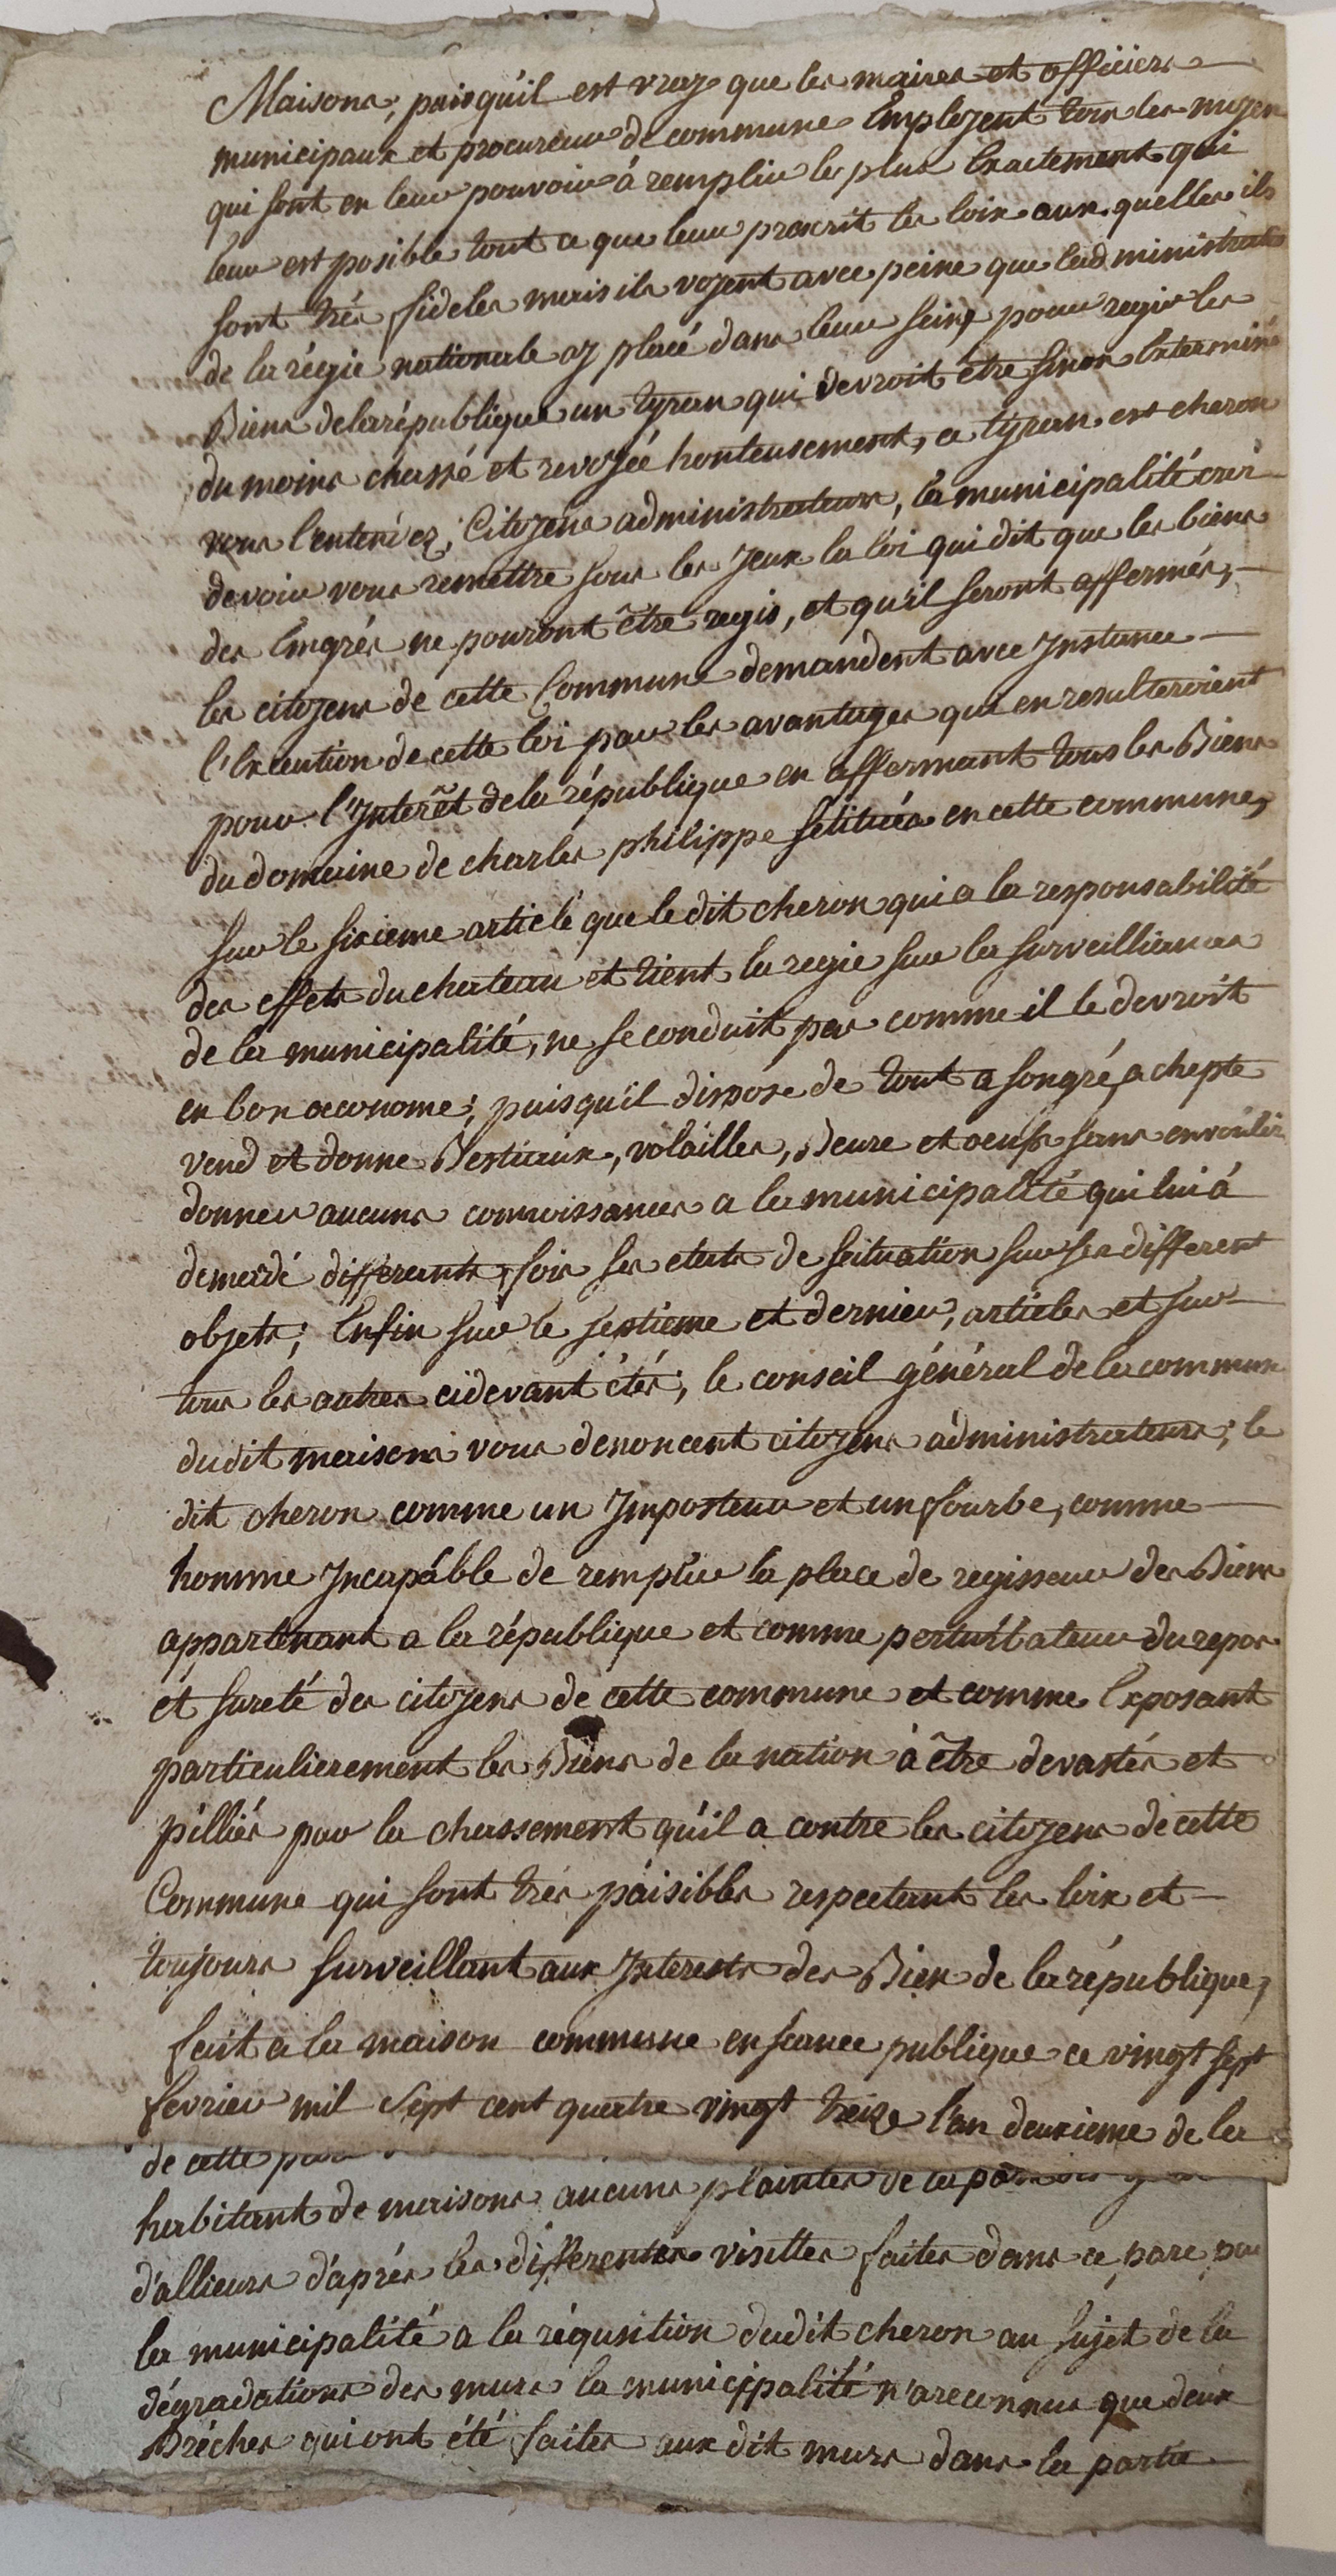 Maisons, puisqu'il est vray que les maires et officiers
municipaux et procureur de commune Employent tous les moyen
qui sont en leur pouvoir à remplir le plus Exactement qui
leur est posible tout ce que leur prescrit les loix aux quelles ils
sont très fideles mais ils voyent avec peine que l'administrateur
de la régie nationale ay placé dans leur sein pour regir les
Biens de la république un tyran qui devroit être sinon Exterminé
du moins chassé et revoyée honteusement, ce tyran est cheron
vous l'entendez, Citoyens administrateurs, la municipalité croi
devoir vous remettre sous les yeux la loi qui dit que les biens
des Emgrés ne pouront être regis, et qu'il seront affermés,
les citoyens de cette Commune demandent avec Instance
l'Execution de cette loi par les avantages qui en resulteroient
pour l'Interêt de la république en affermant tous les Biens
du domaine de charles philippe sétitués en cette commune,
sur le sixieme article que le dit cheron qui a la responsabilité
des effets du chateau et tient la regie sur la surveilliances
de la municipalité, ne se conduit pas comme il le devroit
en bon œconome; puisqu'il dispose de tout a songré, achepte
vend et donne Bestiaux, volailles, Beure et oeufs sans envoulir
donner aucuns connoissances a la municipalité qui lui à
demandé differants fois ses etats de seituation sur ses different
objets; Enfin sur le septieme et dernier, articles et sur
tous les autres cidevant étés; le conseil général de la commune
dudit maisons vous denoncent citoyens administrateurs, le
dit cheron comme un Imposteur et un fourbe, comme
homme Incapable de remplir la place de regisseur des Biens
appartenant a la république et comme perturbateur du repos
et sureté des citoyens de cette commune et comme Exposant
particulierement les Biens de la nation à être devastés et
pilliés par la chassement qu'il a contre les citoyens de cette
Commune qui sont très paisibles respectant les loix et
toujours surveillant aux Interests des Bien de la république,
fait a la maison commune en seance publique ce vingt sept
fevrier mil sept cent quatre vingt treize l'an deuxieme de la
de cette
habitant de maisons aucuns plaintes de
d'allieurs d'après les differentes visittes faites dans ce parc par
la municipalité a la réqusition dudit cheron au sujet de la
dégradations des murs la municipalité n'areconnus que deux
Bréches qui ont été faites aux dit murs dans la partie